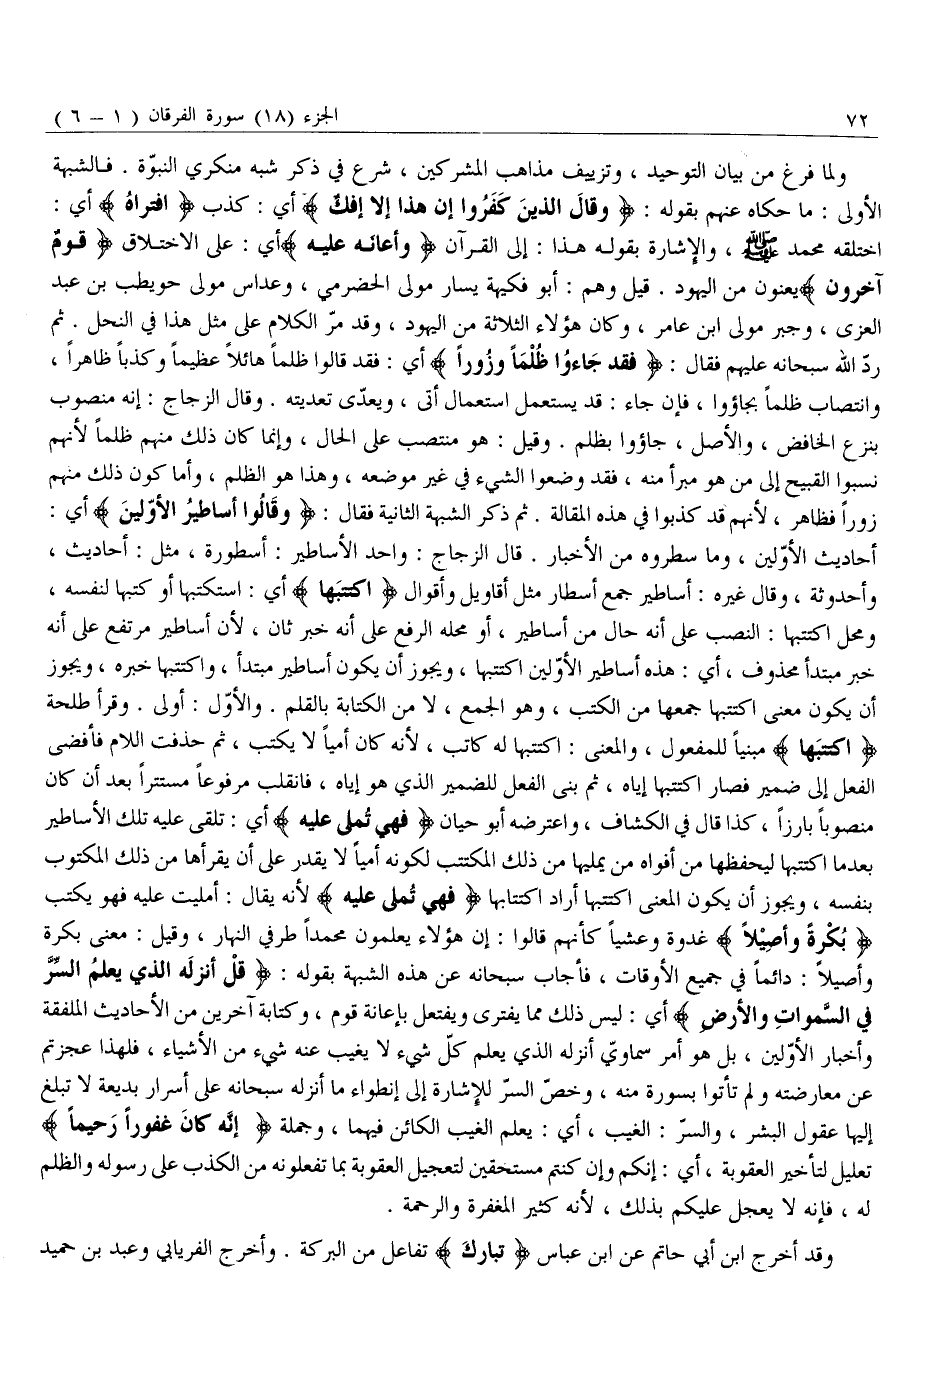 ٧٢ الجزء (١٨) سورة الفرقان ( ١ – ٦ )
ولما فرغ من بيان التوحيد ، وتزييف مذاهب المشركين ، شرع في ذكر شبه منكري النبوّة . فـالشبهة
الأولى : ما حكاه عنهم بقوله : ﴿ وقالَ الذينَ كَفَرُوا إن هذا إلا إفكٌ ﴾ أي : كذب ﴿ افتراهُ ﴾ أي :
اختلقه محمد ﷺ ، والإشارة بقولـه هـذا : إلى القـرآن ﴿ وأعانَـه عليـه ﴾أي : على الاختـلاق ﴿ قـومٌ
آخرون ﴾يعنون من اليهود . قيل وهم : أبو فكيهة يسار مولى الحضرمي ، وعداس مولى حويطب بن عبد
العزى ، وجبر مولى ابن عامر ، وكان هؤلاء الثلاثة من اليهود ، وقد مرّ الكلام على مثل هذا في النحل . ثم
ردّ الله سبحانه عليهم فقال : ﴿ فقد جَاءوُا ظُلْمَاً وزُوراً ﴾ أي : فقد قالوا ظلماً هائلاً عظيماً وكذباً ظاهراً ،
وانتصاب ظلماً بجاؤوا ، فإن جاء : قد يستعمل استعمال أتى ، ويعدّى تعديته . وقال الزجاج : إنه منصوب
بنزع الخافض ، والأصل ، جاؤوا بظلم . وقيل : هو منتصب على الحال ، وإنما كان ذلك منهم ظلماً لأنهم
نسبوا القبيح إلى من هو مبرأ منه ، فقد وضعوا الشيء في غير موضعه ، وهذا هو الظلم ، وأما كون ذلك منهم
زوراً فظاهر ، لأنهم قد كذبوا في هذه المقالة . ثم ذكر الشبهة الثانية فقال : ﴿ وقَالُوا أساطيرُ الأوّلينَ ﴾ أي :
أحاديث الأوّلين ، وما سطروه من الأخبار . قال الزجاج : واحد الأساطير : أسطورة ، مثل : أحاديث ،
وأحدوثة ، وقال غيره : أساطير جمع أسطار مثل أقاويل وأقوال ﴿ اكتتبَها ﴾ أي : استكتبها أو كتبها لنفسه ،
ومحل اكتتبها : النصب على أنه حال من أساطير ، أو محله الرفع على أنه خبر ثان ، لأن أساطير مرتفع على أنه
خبر مبتدأ محذوف ، أي : هذه أساطير الأوّلين اكتتبها ، ويجوز أن يكون أساطير مبتدأ ، واكتتبها خبره ، ويجوز
أن يكون معنى اكتتبها جمعها من الكتب ، وهو الجمع ، لا من الكتابة بالقلم . والأوّل : أولى . وقرأ طلحة
﴿ اكتتبَها ﴾ مبنياً للمفعول ، والمعنى : اكتتبها له كاتب ، لأنه كان أمياً لا يكتب ، ثم حذفت اللام فأفضى
الفعل إلى ضمير فصار اكتتبها إياه ، ثم بنى الفعل للضمير الذي هو إياه ، فانقلب مرفوعاً مستتراً بعد أن كان
منصوباً بارزاً ، كذا قال في الكشاف ، واعترضه أبو حيان ﴿ فهي تُملى عليه ﴾ أي : تلقى عليه تلك الأساطير
بعدما اكتتبها ليحفظها من أفواه من يمليها من ذلك المكتتب لكونه أمياً لا يقدر على أن يقرأها من ذلك المكتوب
بنفسه ، ويجوز أن يكون المعنى اكتتبها أراد اكتتابها ﴿ فهي تُملى عليه ﴾ لأنه يقال : أمليت عليه فهو يكتب
﴿ بُكْرةً وأصِيْلاً ﴾ غدوة وعشياً كأنهم قالوا : إن هؤلاء يعلمون محمداً طرفي النهار ، وقيل : معنى بكرة
وأصيلاً : دائماً في جميع الأوقات ، فأجاب سبحانه عن هذه الشبهة بقوله : ﴿ قلْ أنزلَه الذي يعلمُ السرَّ
في السَّمواتِ والأرضِ ﴾ أي : ليس ذلك مما يفترى ويفتعل بإعانة قوم ، وكتابة آخرين من الأحاديث الملفقة
وأخبار الأوّلين ، بل هو أمر سماويّ أنزله الذي يعلم كلّ شيء لا يغيب عنه شيء من الأشياء ، فلهذا عجزتم
عن معارضته ولم تأتوا بسورة منه ، وخصّ السرّ للإشارة إلى إنطواء ما أنزله سبحانه على أسرار بديعة لا تبلغ
إليها عقول البشر ، والسرّ : الغيب ، أي : يعلم الغيب الكائن فيهما ، وجملة ﴿ إنَّه كانَ غفوراً رَحيماً ﴾
تعليل لتأخير العقوبة ، أي : إنكم وإن كنتم مستحقين لتعجيل العقوبة بما تفعلونه من الكذب على رسوله والظلم
له ، فإنه لا يعجل عليكم بذلك ، لأنه كثير المغفرة والرحمة .
وقد أخرج ابن أبي حاتم عن ابن عباس ﴿ تباركَ ﴾ تفاعل من البركة . وأخرج الفريابي وعبد بن حميد